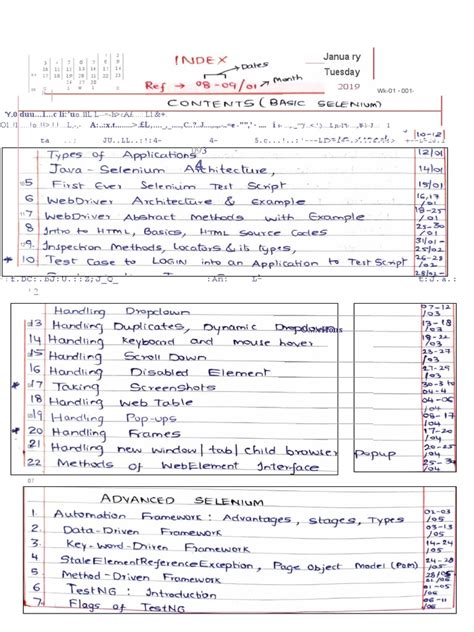 INDEX
Dates
Ref → 08-09/01 → Month
January
Tuesday
2019
Wk-01 - 001-
CONTENTS (BASIC SELENIUM)
10-12
Types of Applications 12/01
Java - Selenium Architecture, 14/01
5 First Ever Selenium Test Script 15/01
6 WebDriver Architecture & Example 16,17/01
7 WebDriver Abstract Methods with Example 18-25/01
8 Intro to HTML, Basics, HTML Source Codes 25-30/01
9 Inspection Methods, Locators & its types, 31/01 - 25/02
* 10 Test Case to LOGIN into an Application to Test Script 26-28/02
28/02 -
Handling Dropdown 07-12/03
13 Handling Duplicates, Dynamic Dropdowns 13-18/03
14 Handling Keyboard and mouse hover 19-22/03
15 Handling Scroll Down 23-27/03
16 Handling Disabled Element 27-29/03
* 17 Taking Screenshots 30-3 to 04-4
18 Handling Web Table 04-06/04
19 Handling Pop-ups 08-17/04
* 20 Handling Frames 17-20/04
21 Handling new window/tab/child browser Popup 20-25/04
22 Methods of WebElement Interface 25-30/04
ADVANCED SELENIUM
1. Automation Framework: Advantages, stages, Types 02-03/05
2. Data-Driven Framework 03-13/05
3. Key-word-Driven Framework 14-24/05
4. StaleElementReferenceException, Page Object Model (POM) 24-28/05
5 Method-Driven Framework 28/05
6 TestNG: Introduction 01-05
7. Flags of TestNG 06-11/06